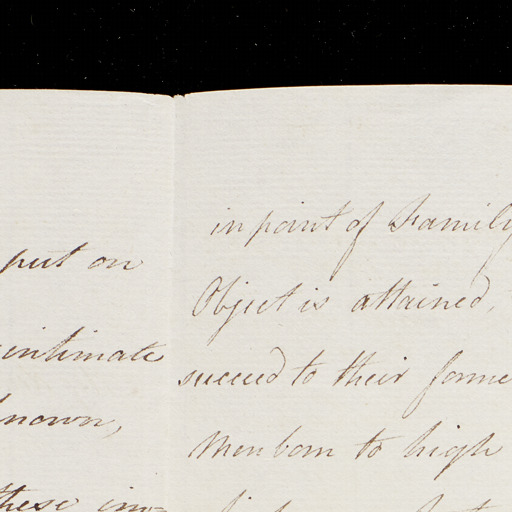 put on
intimate
known,
these inv-
in point of Family
Object is attained,
succeed to their forme
Men born to high